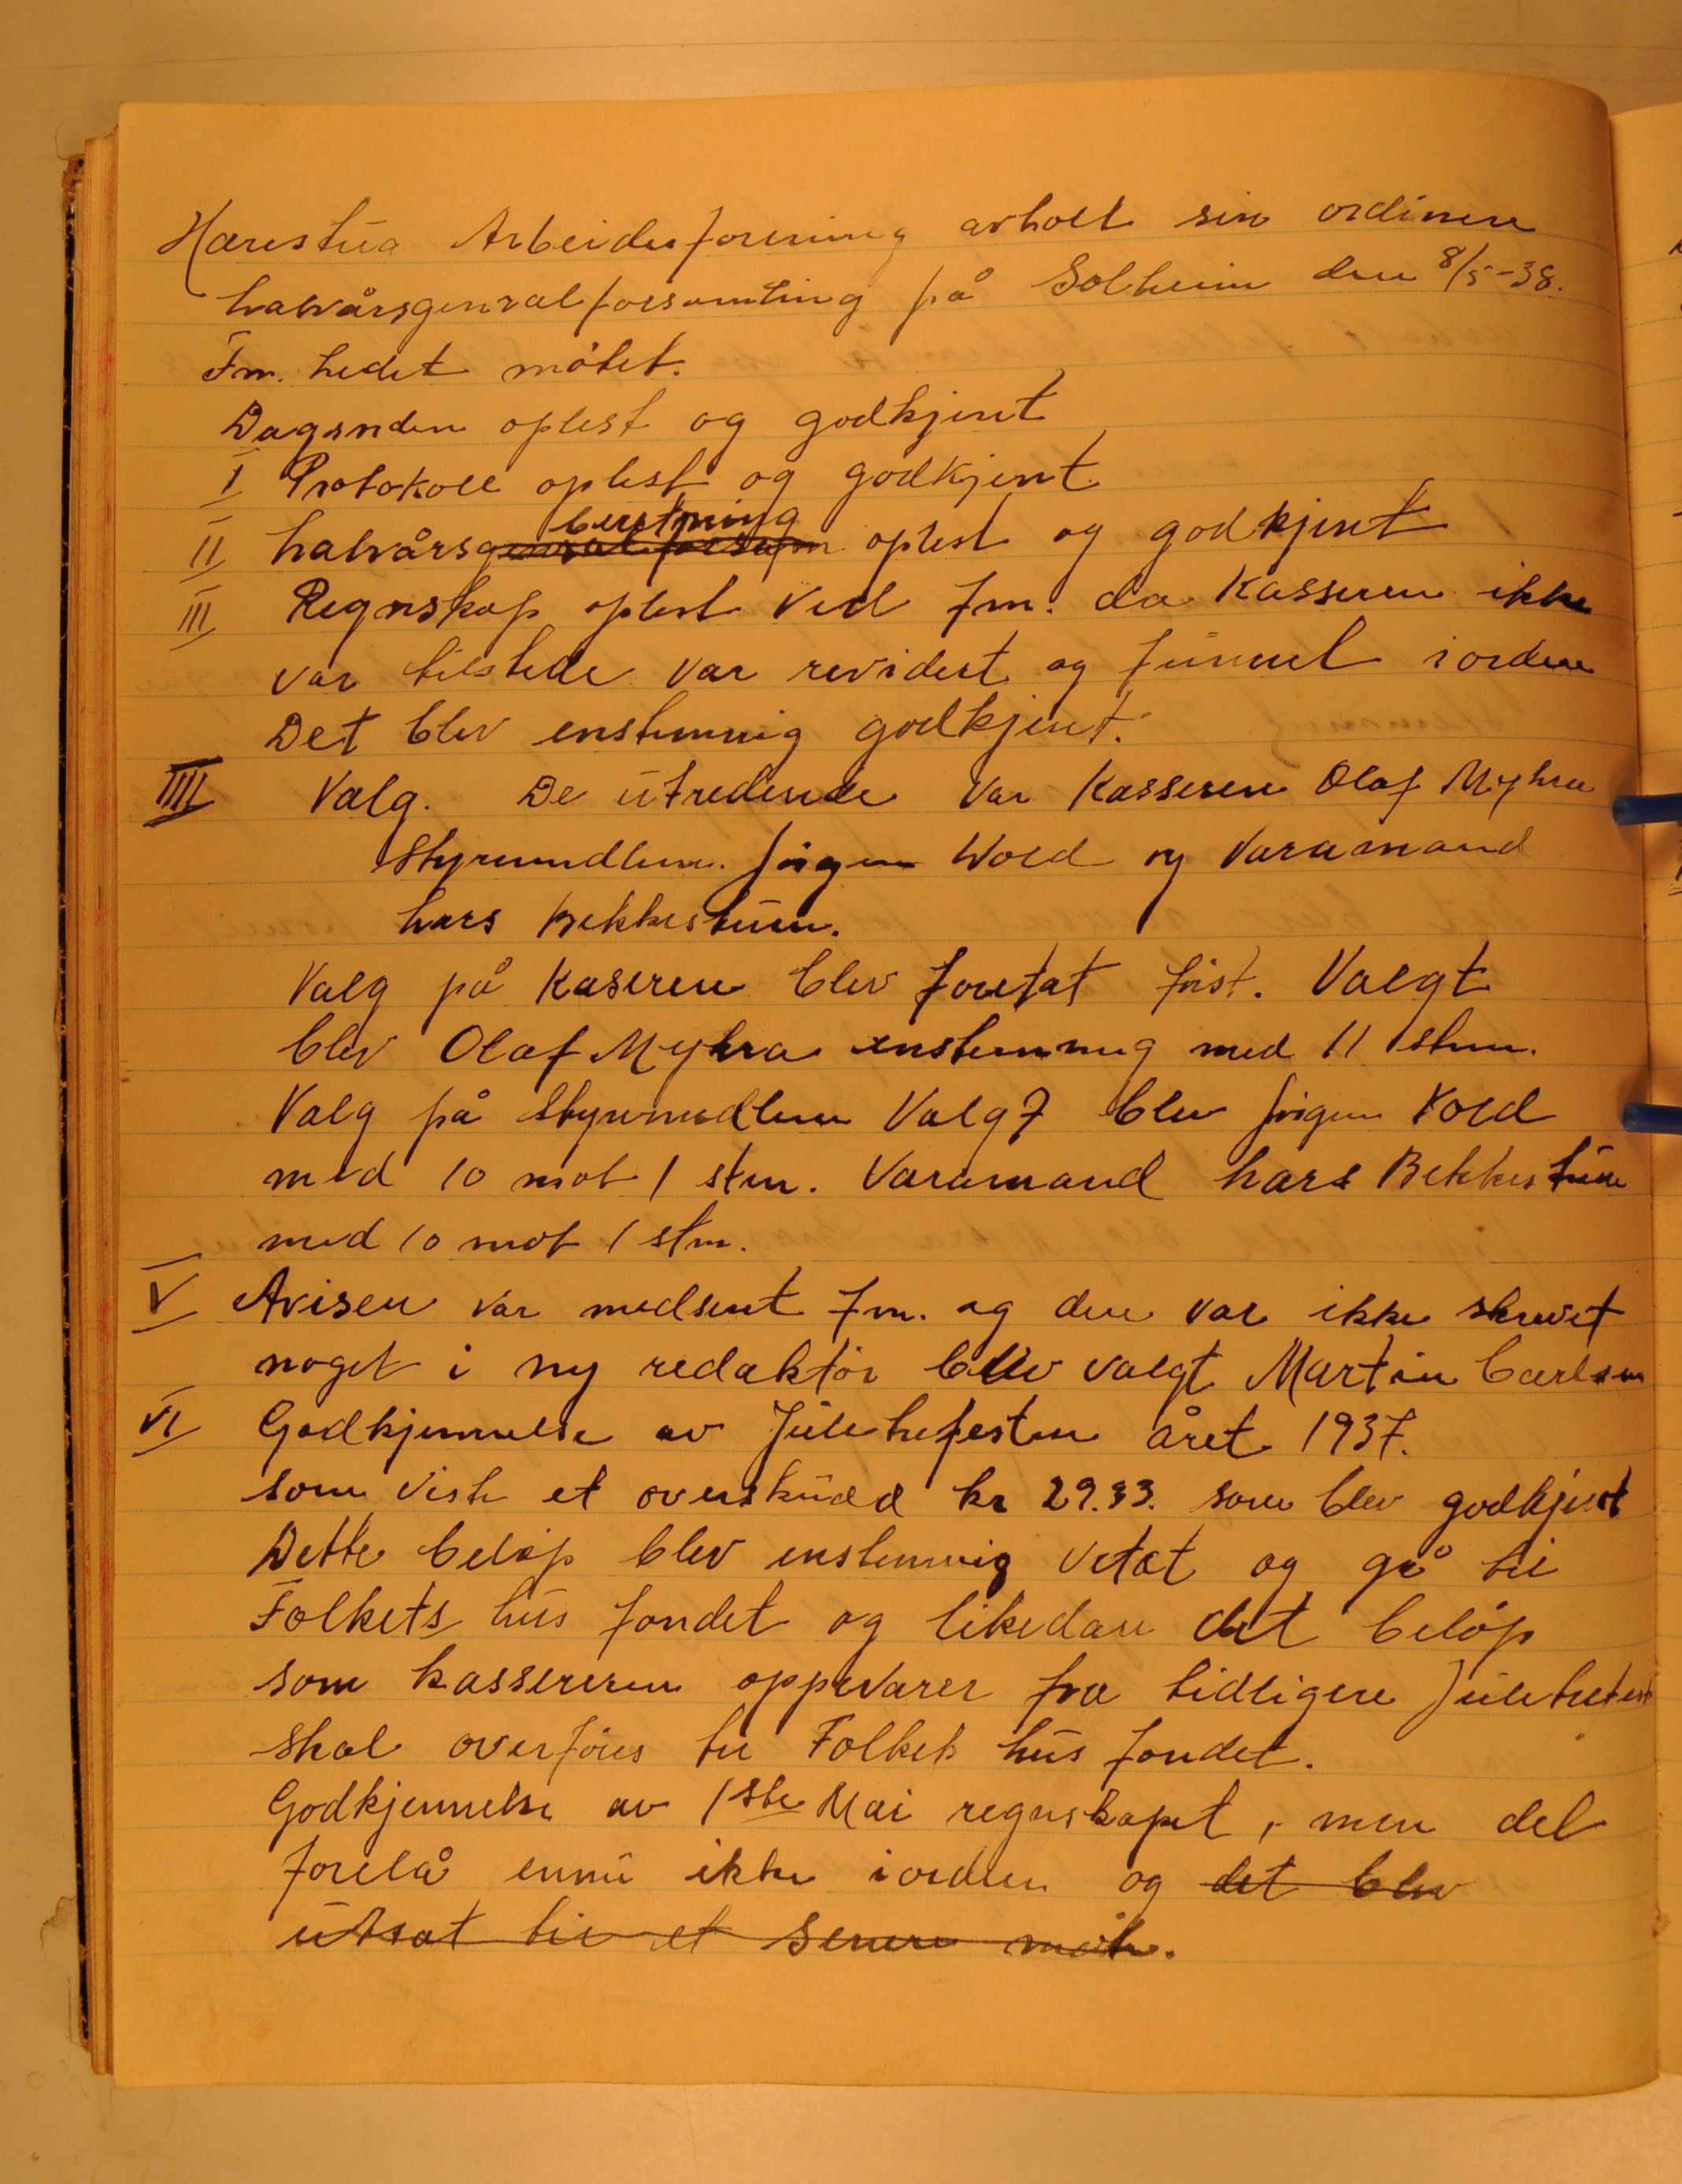 Harestua Arbeiderforening avholt sin ordinere
halvårsgenralforsamling på Solheim den 8/5-38.
Fm. ledet møtet.
Dagsorden oplest og godkjent
I Protokoll oplest og godkjent
beretning
II halvårsgenralforsam oplest og godkjent
III Regnskap oplest ved fm. da Kasseren ikke
var tilstede var revidert og funnet iorden
Det blev enstemmig godkjent.
IIII Valg. De utredende var Kasseren Olaf Myhre
Styremedlem. Jørgen Wold og Varamand
Lars Bekkestuen.
Valg på Kaseren blev foretat først. Valgt
blev Olaf Myhra enstemmig med 11 stem.
Valg på Styremedlem Valgt blev Jørgen Vold
med 10 mot 1 stm. Varamand Lars Bekkestuen
med 10 mot 1 stm.
V Avisen var medsent fm. og der var ikke skrevet
noget i ny redaktør blev valgt Martin Carlsen
VI Godkjennelse av Juletrefesten året 1937.
som viste et overskudd kr 29.93. som blev godkjent
Dette beløp blev enstemmig vetat og gå til
Folkets hus fondet og likedan det beløp
som kassereren oppevarer fra tidligere Juletrefest
skal overføres til Folkets hus fondet.
Godkjennelse av 1ste Mai regnskapet, men det
forelå ennu ikke iorden og det blev
utsat til et senere møte.